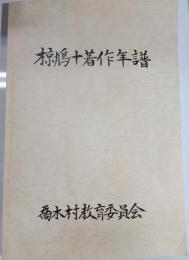 椋鳩十著作年譜
喬木村教育委員会